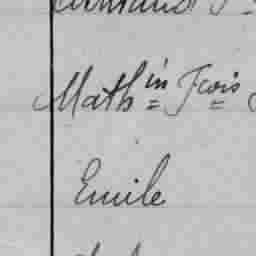 Mathin Fcois
Emile